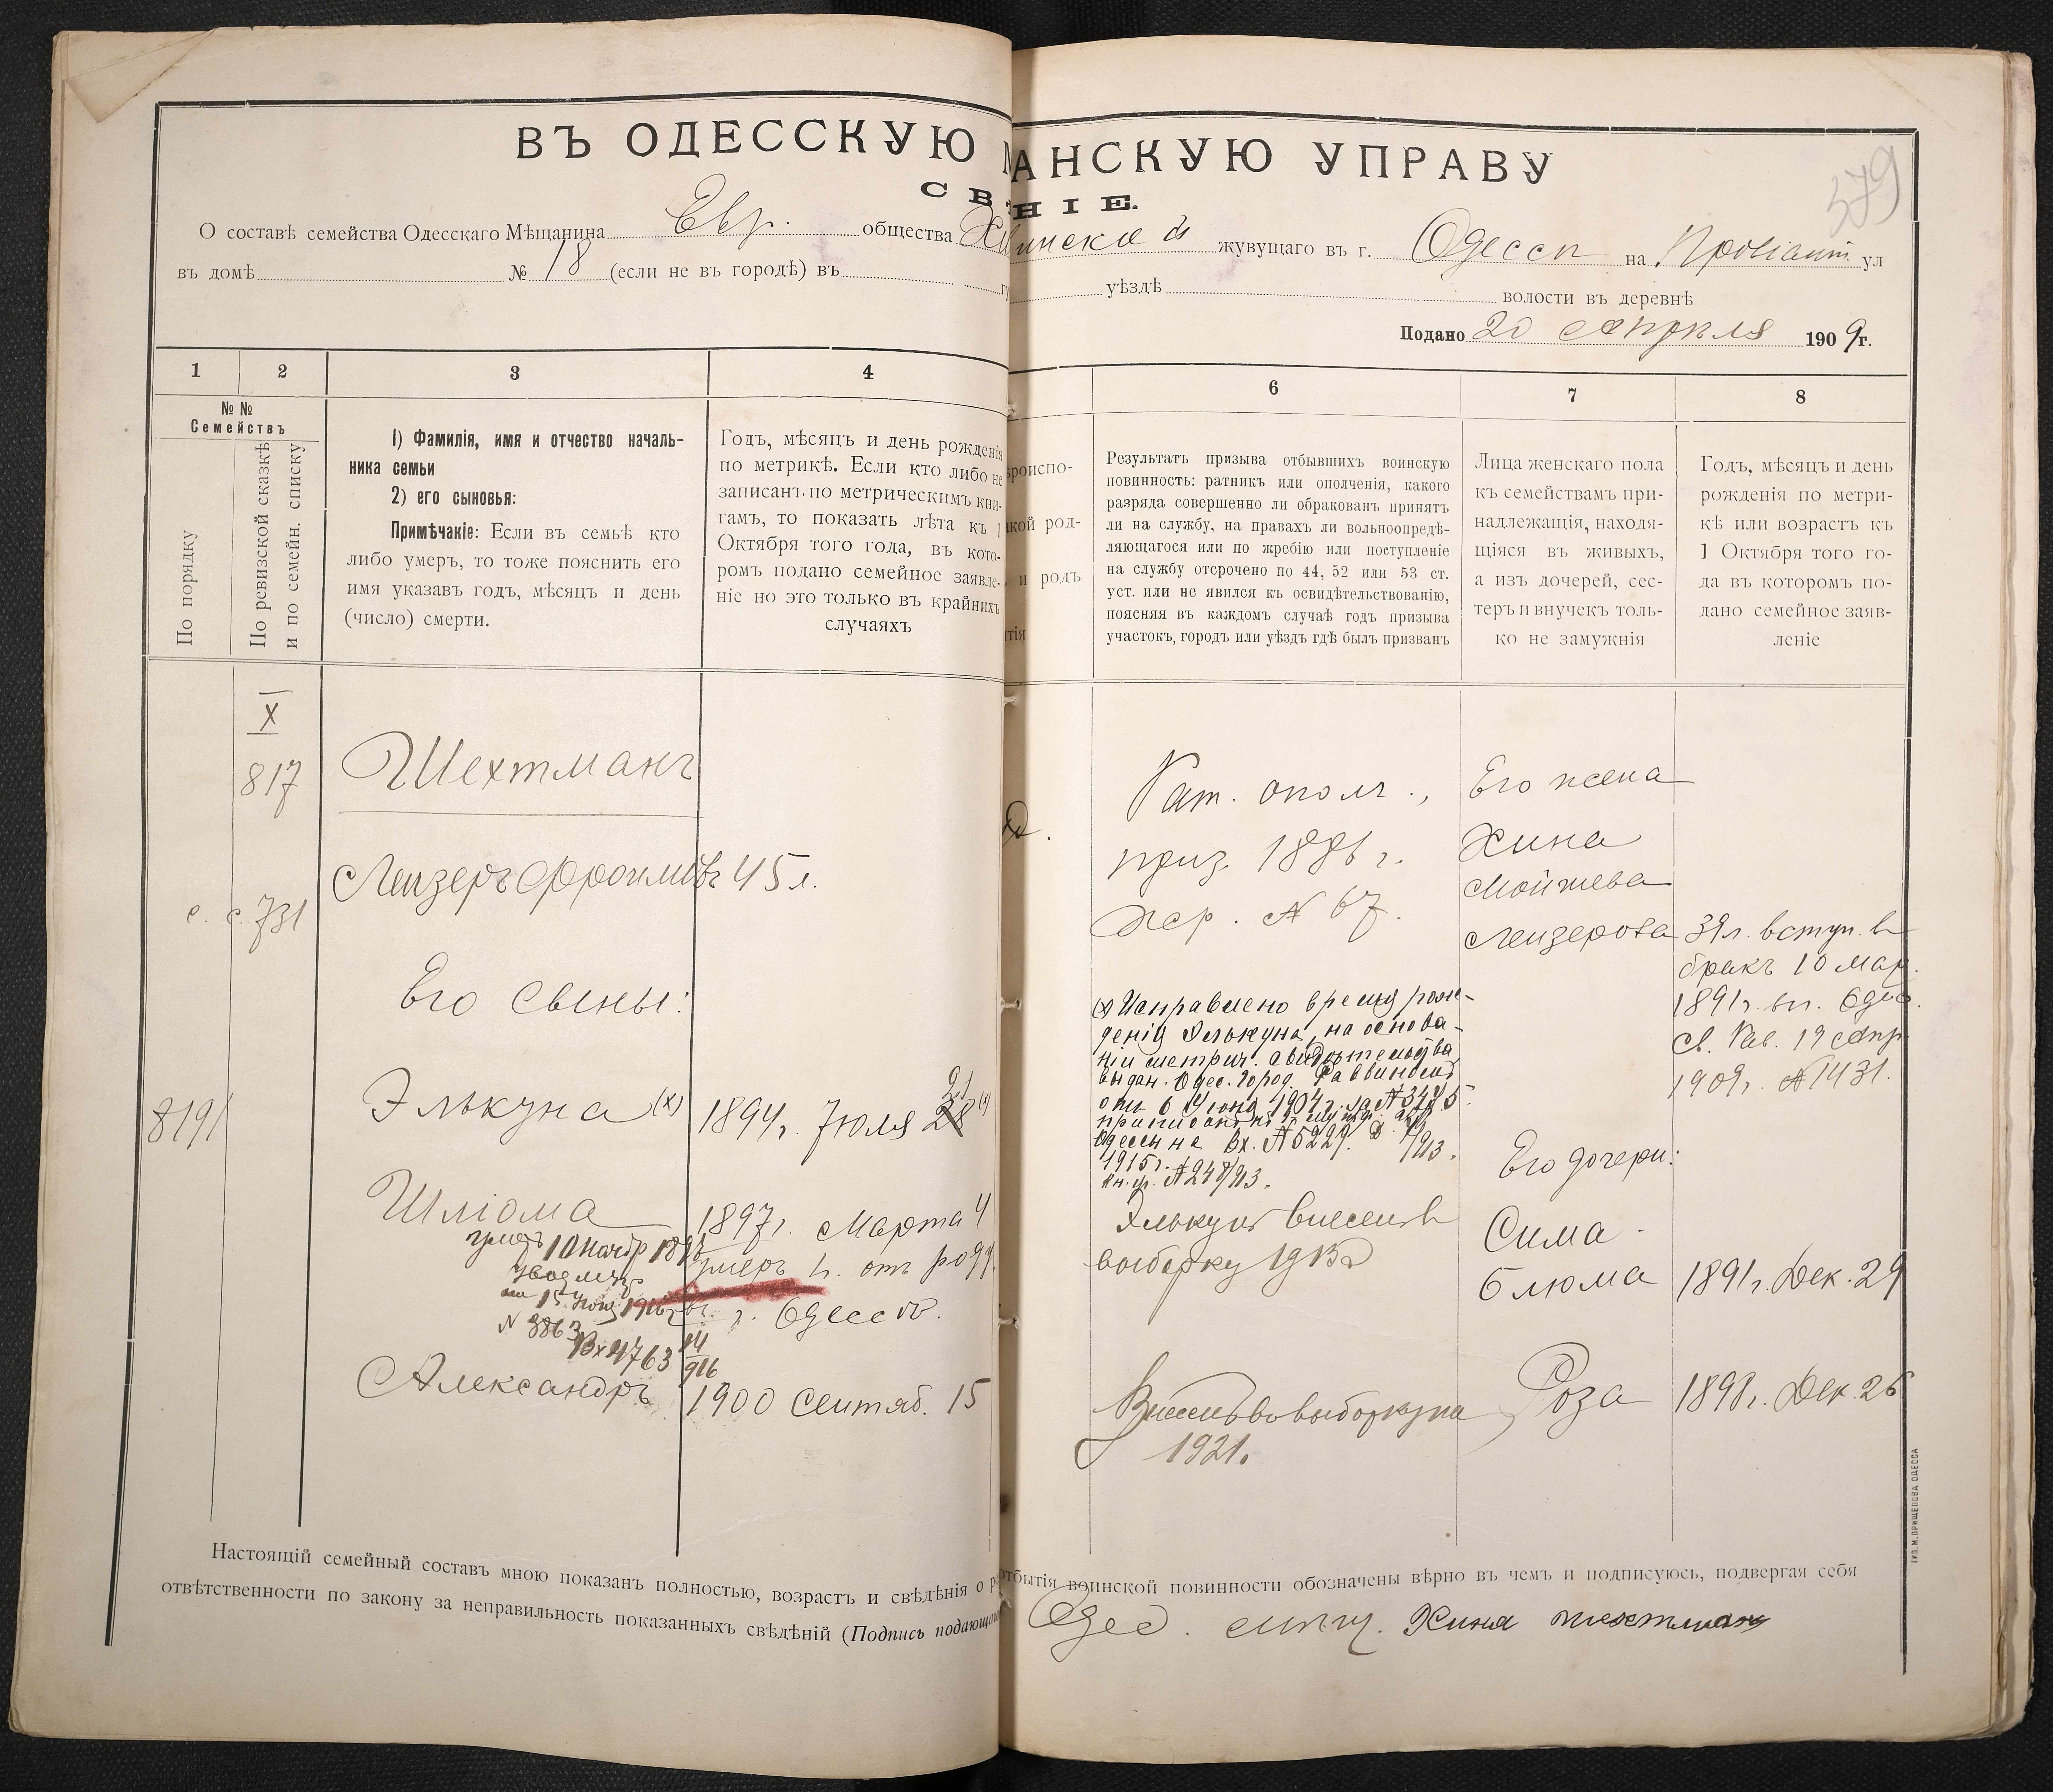 ВЪ ОДЕССКУЮ АНСКУЮ УПРАВУ
СВ НІЕ.
379
О составѣ семейства Одесскаго Мѣщанина Евр. общества жувущаго въ г. Одессѣ на Провіант. ул
въ домѣ № 18 (если не въ городѣ) въ уѣздѣ волости въ деревнѣ
Подано 20 Апрѣля 1909 г.
1 2 3 4 6 7 8
№№
Семействъ
По порядку
По ревизской сказкѣ
и по семейн. списку
1) Фамилія, имя и отчество началь-
ника семьи
2) его сыновья:
Примѣчакіе: Если въ семьѣ кто
либо умеръ, то тоже пояснить его
имя указавъ годъ, мѣсяцъ и день
(число) смерти.
Годъ, мѣсяцъ и день рожденія
по метрикѣ. Если кто либо не
записанъ по метрическимъ кни-
гамъ, то показать лѣта къ 1
Октября того года, въ кото-
ромъ подано семейное заявле-
ніе но это только въ крайнихъ
случаяхъ
вроиспо-
акой род-
и родъ
тія
Результатъ призыва отбывшихъ воинскую
повинность: ратникъ или ополченія, какого
разряда совершенно ли обракованъ принятъ
ли на службу, на правахъ ли вольноопредѣ-
ляющагося или по жребію или поступленіе
на службу отсрочено по 44, 52 или 53 ст.
уст. или не явился къ освидѣтельствованію,
поясняя въ каждомъ случаѣ годъ призыва
участокъ, городъ или уѣздъ гдѣ былъ призванъ
Лица женскаго пола
къ семействамъ при-
надлежащія, находя-
щіяся въ живыхъ,
а изъ дочерей, сес-
теръ и внучекъ толь-
ко не замужнія
Годъ, мѣсяцъ и день
рожденія по метри-
кѣ или возрастъ къ
1 Октября того го-
да въ которомъ по-
дано семейное заяв-
леніе
X
817
Шехтманъ
с. с. 731
Лейзеръ Фроимовъ 45 л.
Его сыны:
8191
Элькуна (x) 1894 г. Іюля 21 28 (x)
Шліома 1897 г. Марта 4
умеръ г. отъ роду
въ г. Одессѣ.
N 3863
Вх 4763 14/916
Александръ 1900 Сентяб. 15
Рат. ополч.,
приз. 1886 г.
жер. N 67.
(x) Исправлено время рож-
денія Элькуна, на основа-
ніи метрич. свидѣтельства
выдан. Одес. Город. Раввиномъ
отъ 6 Іюня 1904 г. за N 3475
Одессы на Вх. N 5229.
1915 г.
N 248/913.
Элькунъ внесенъ в
выборку 1915
Внесенъ во выборку на
1921.
Его жена
Хина
Мойшева
Лейзерова
39 л. вступ. въ
бракъ 10 мар.
1891 г. въ г. Одес.
св. Рав. 19 Апр
1909 г. N 1431.
Его дочери:
Сима-
Блюма 1891 г. Дек. 29
Роза 1898 г. Дек. 26
Настоящій семейный составъ мною показанъ полностью, возрастъ и свѣдѣнія о отбытія воинской повинности обозначены вѣрно въ чемъ и подписуюсь, подвергая себя
отвѣтственности по закону за неправильность показанныхъ свѣдѣній (Подпись подающаго
Одес. мѣщ. Хиня Шехтман
ТИП. М. ПРИЩЕПОВА ОДЕССА